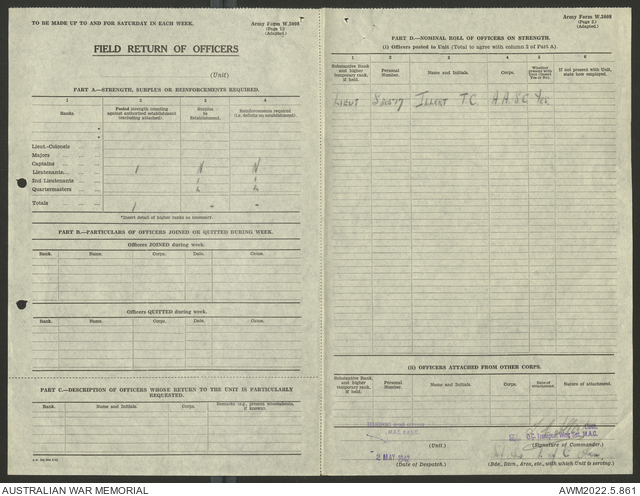 TO BE MADE UP TO AND FOR SATURDAY IN EACH WEEK.
Army Form W.3008
(Page 1)
(Adapted.)
FIELD RETURN OF OFFICERS
(Unit)
PART A.—STRENGTH, SURPLUS OR REINFORCEMENTS REQUIRED.
1 2 3 4
Ranks
Posted strength counting against authorized establishment (excluding attached).
Surplus to Establishment.
Reinforcements required (i.e. deficits on establishment).
*
*
Lieut.-Colonels
Majors
Captains
Lieutenants 1 N N
2nd Lieutenants
Quartermasters
Totals 1 - -
*Insert detail of higher ranks as necessary.
PART B.—PARTICULARS OF OFFICERS JOINED OR QUITTED DURING WEEK.
Officers JOINED during week.
Rank. Name. Corps. Date. Cause.
Officers QUITTED during week.
Rank. Name. Corps. Date. Cause.
PART C.—DESCRIPTION OF OFFICERS WHOSE RETURN TO THE UNIT IS PARTICULARLY REQUESTED.
Rank. Name and Initials. Corps. Remarks (e.g., present whereabouts, if known).
Army Form W.3008
(Page 2)
(Adapted.)
PART D.—NOMINAL ROLL OF OFFICERS ON STRENGTH.
(i) Officers posted to Unit (Total to agree with column 2 of Part A).
1 2 3 4 5 6
Substantive Rank and higher temporary rank, if held.
Personal Number.
Name and Initials.
Corps.
Whether present with Unit (insert Yes or No).
If not present with Unit, state how employed.
LIEUT T.C. A.A.S.C. Yes
(ii) OFFICERS ATTACHED FROM OTHER CORPS.
Substantive Rank and higher temporary rank, if held.
Personal Number.
Name and Initials.
Corps.
Date of Attachment.
Nature of attachment.
(Unit.)
(Signature of Commander.)
2 MAY 1942
(Date of Despatch.)
(Bde., Divn., Area, etc., with which Unit is serving.)
AUSTRALIAN WAR MEMORIAL
AWM2022.5.861